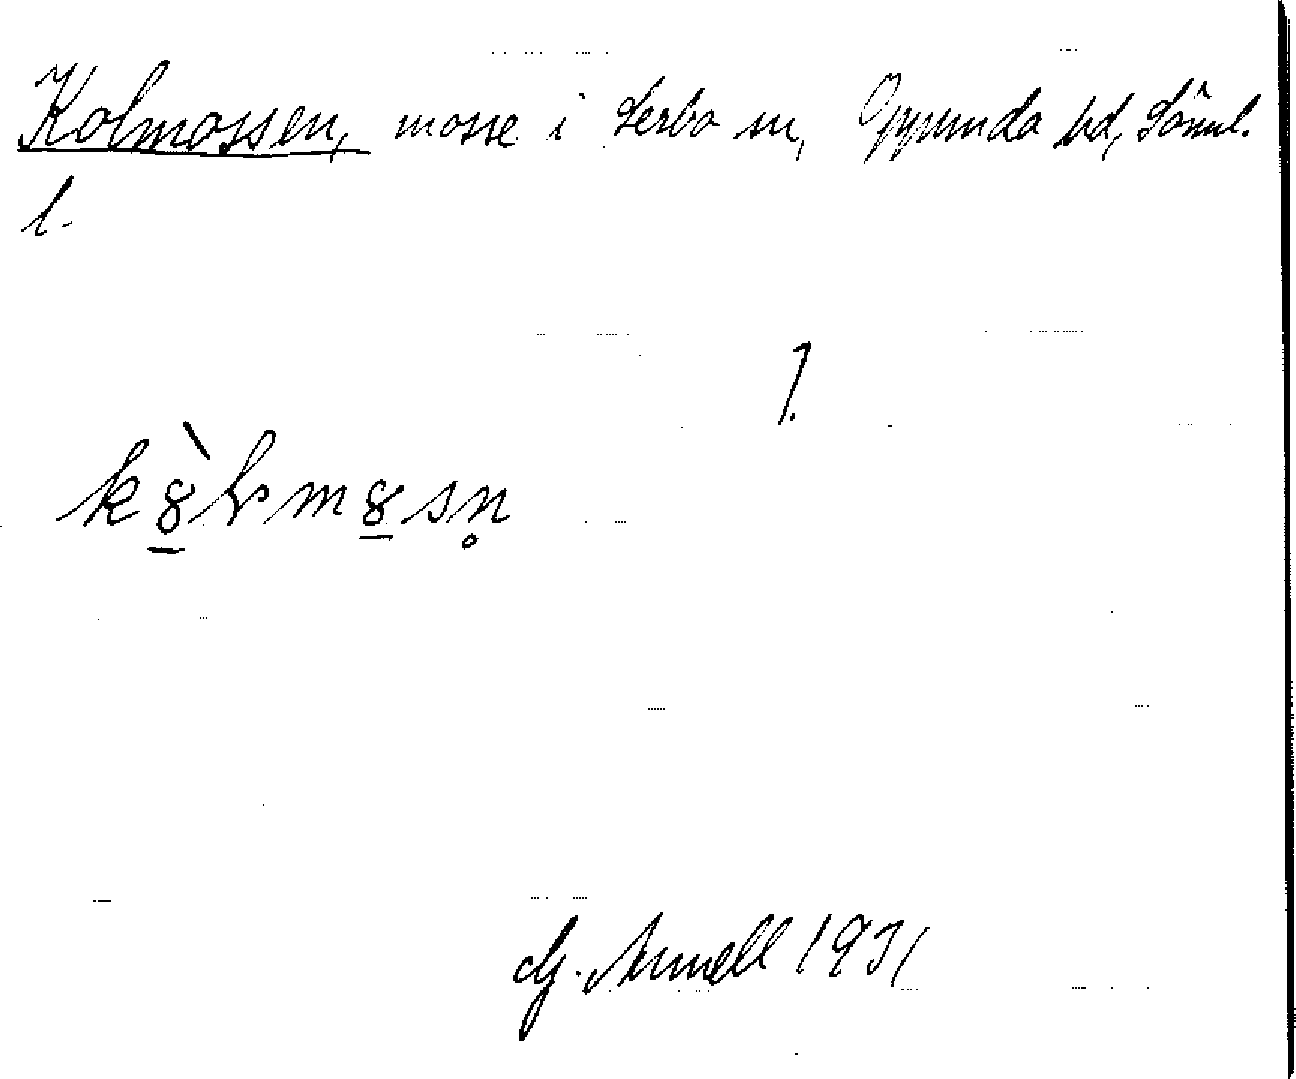 Kolmossen, mosse i Lerbo sn, Oppunda hd, Söml.
l.
G. Annell 1931